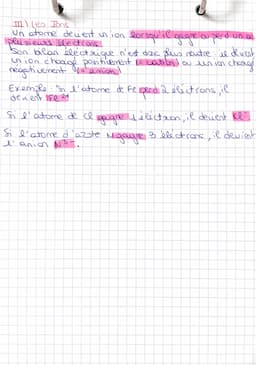 III) Les Ions
Un atome devient un ion lorsqu'il gagne ou perd un ou
plusieurs électrons.
Son bilan électrique n'est donc plus neutre : il devient
un ion chargé positivement (= cation) ou un ion chargé
négativement (= anion)
Exemple : Si l'atome de Fe perd 2 électrons, il
devient Fe²⁺
Si l'atome de Cl gagne 1 électron, il devient Cl⁻
Si l'atome d'azote N gagne 3 électrons, il devient
l'anion N³⁻.